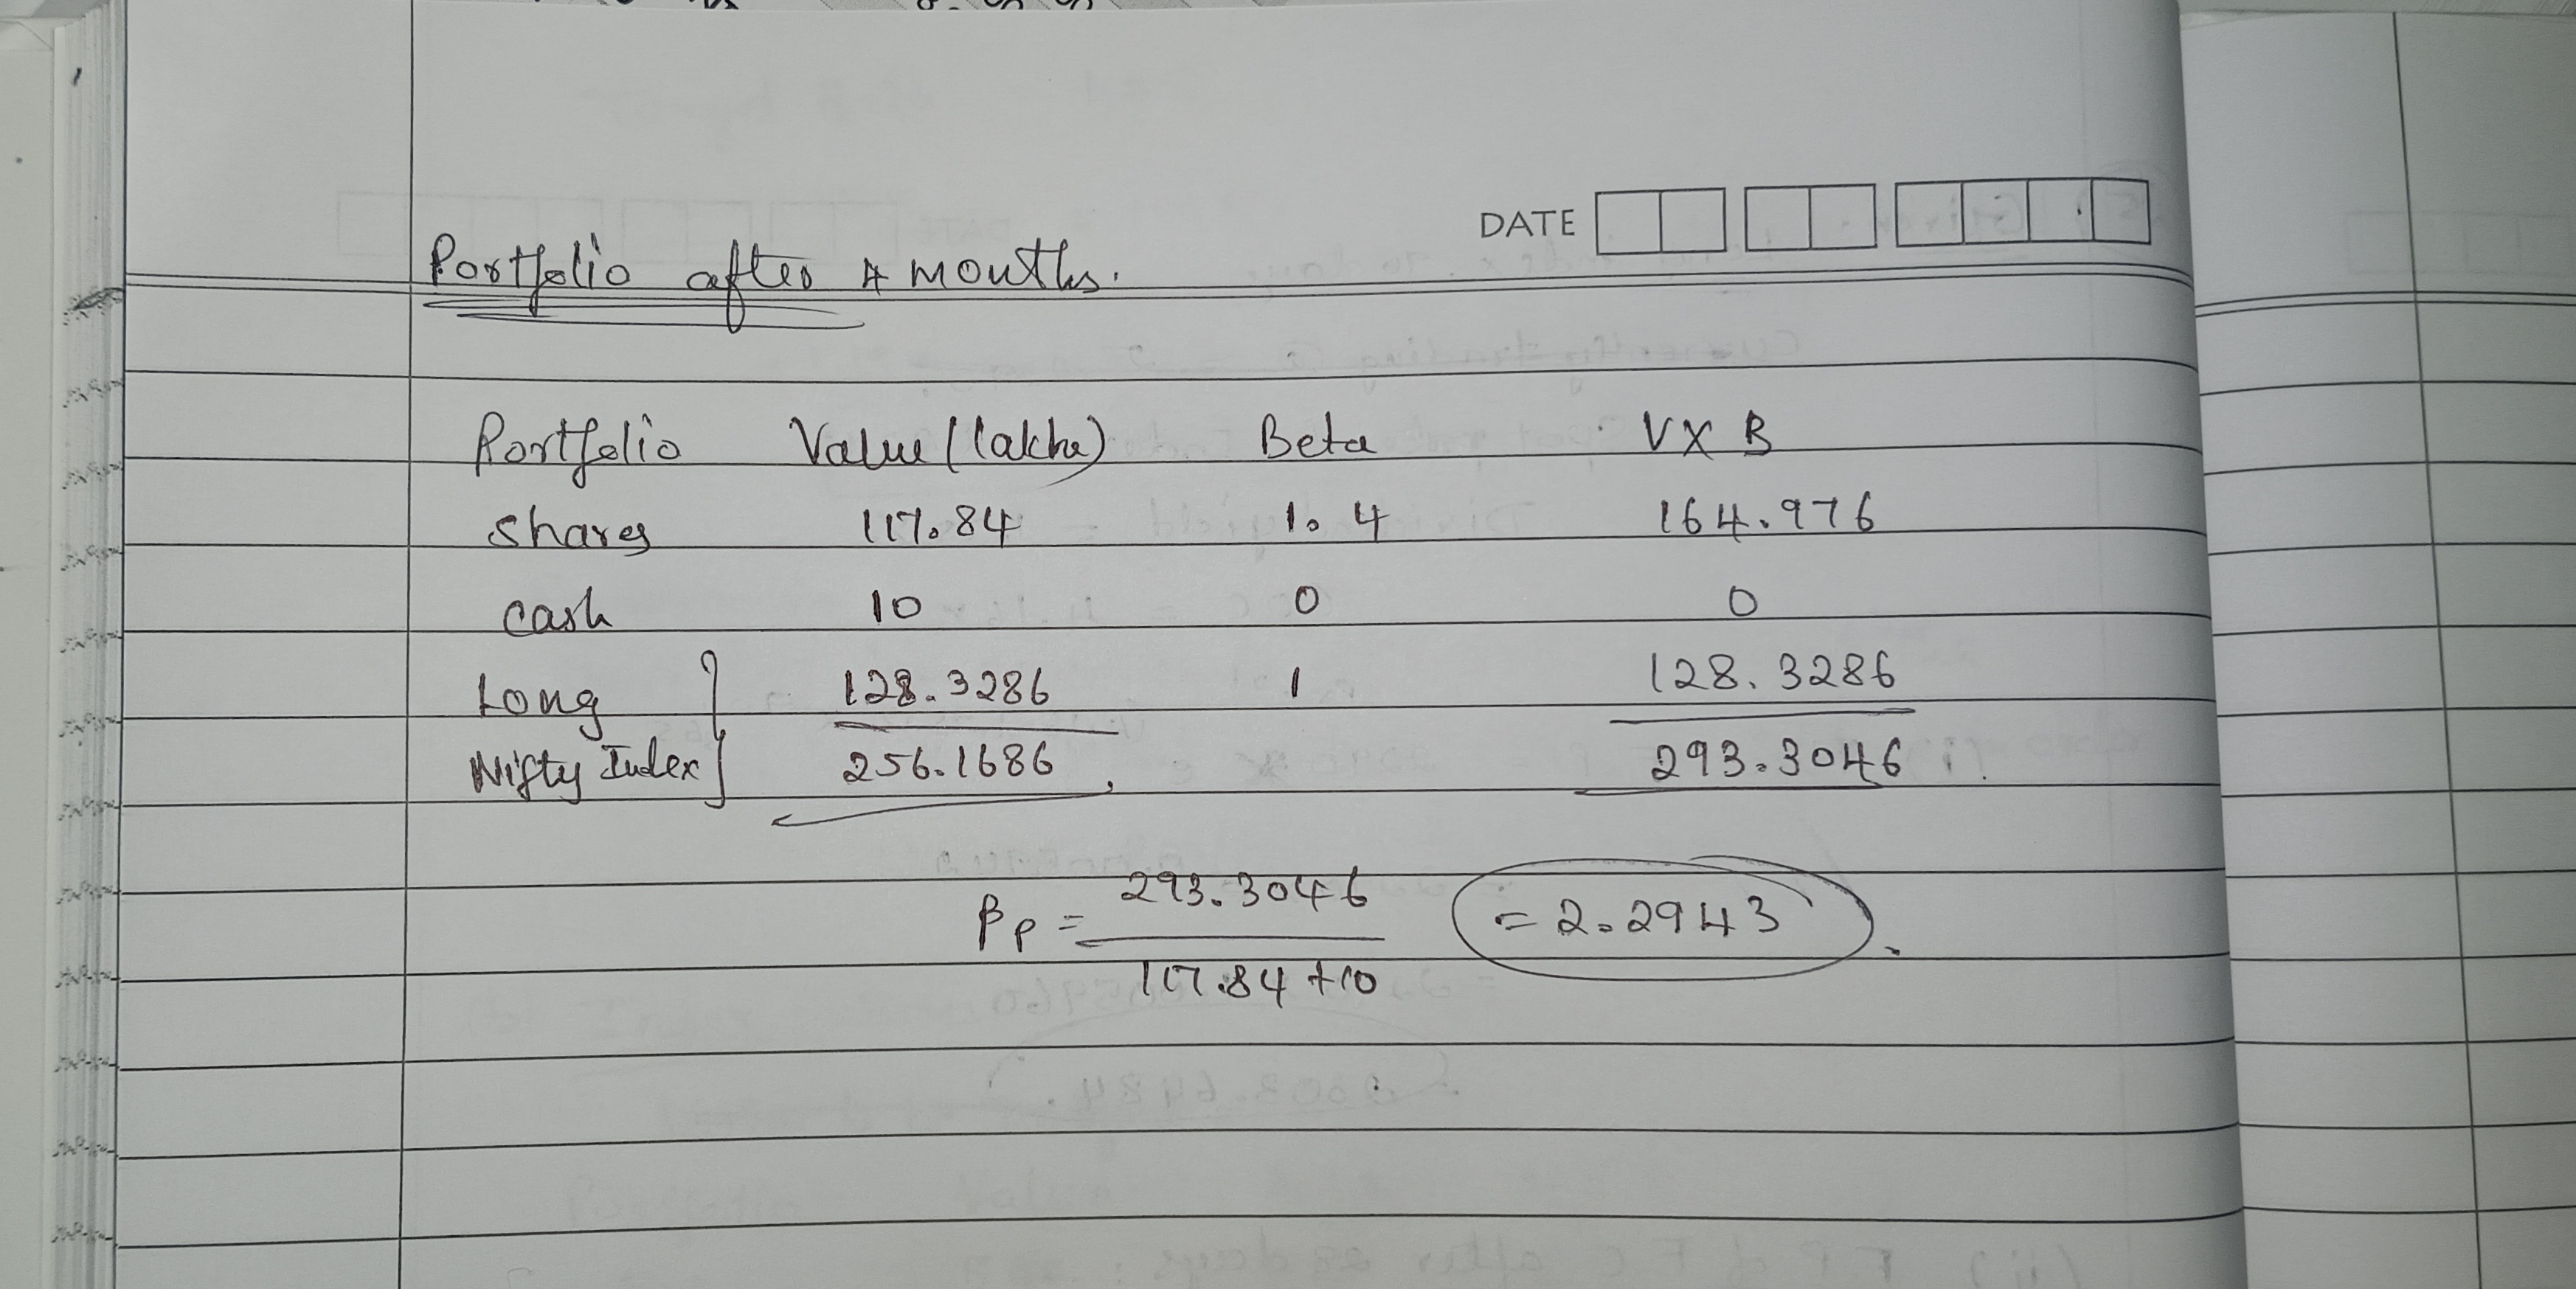 DATE
Portfolio after 4 months.
Portfolio Value (lakhs) Beta V X B
Shares 117.84 1.4 164.976
Cash 10 0 0
Long 128.3286 1 128.3286
Nifty Index 256.1686 293.3046
βp = 293.3046 / 117.84 + 10 = 2.2943